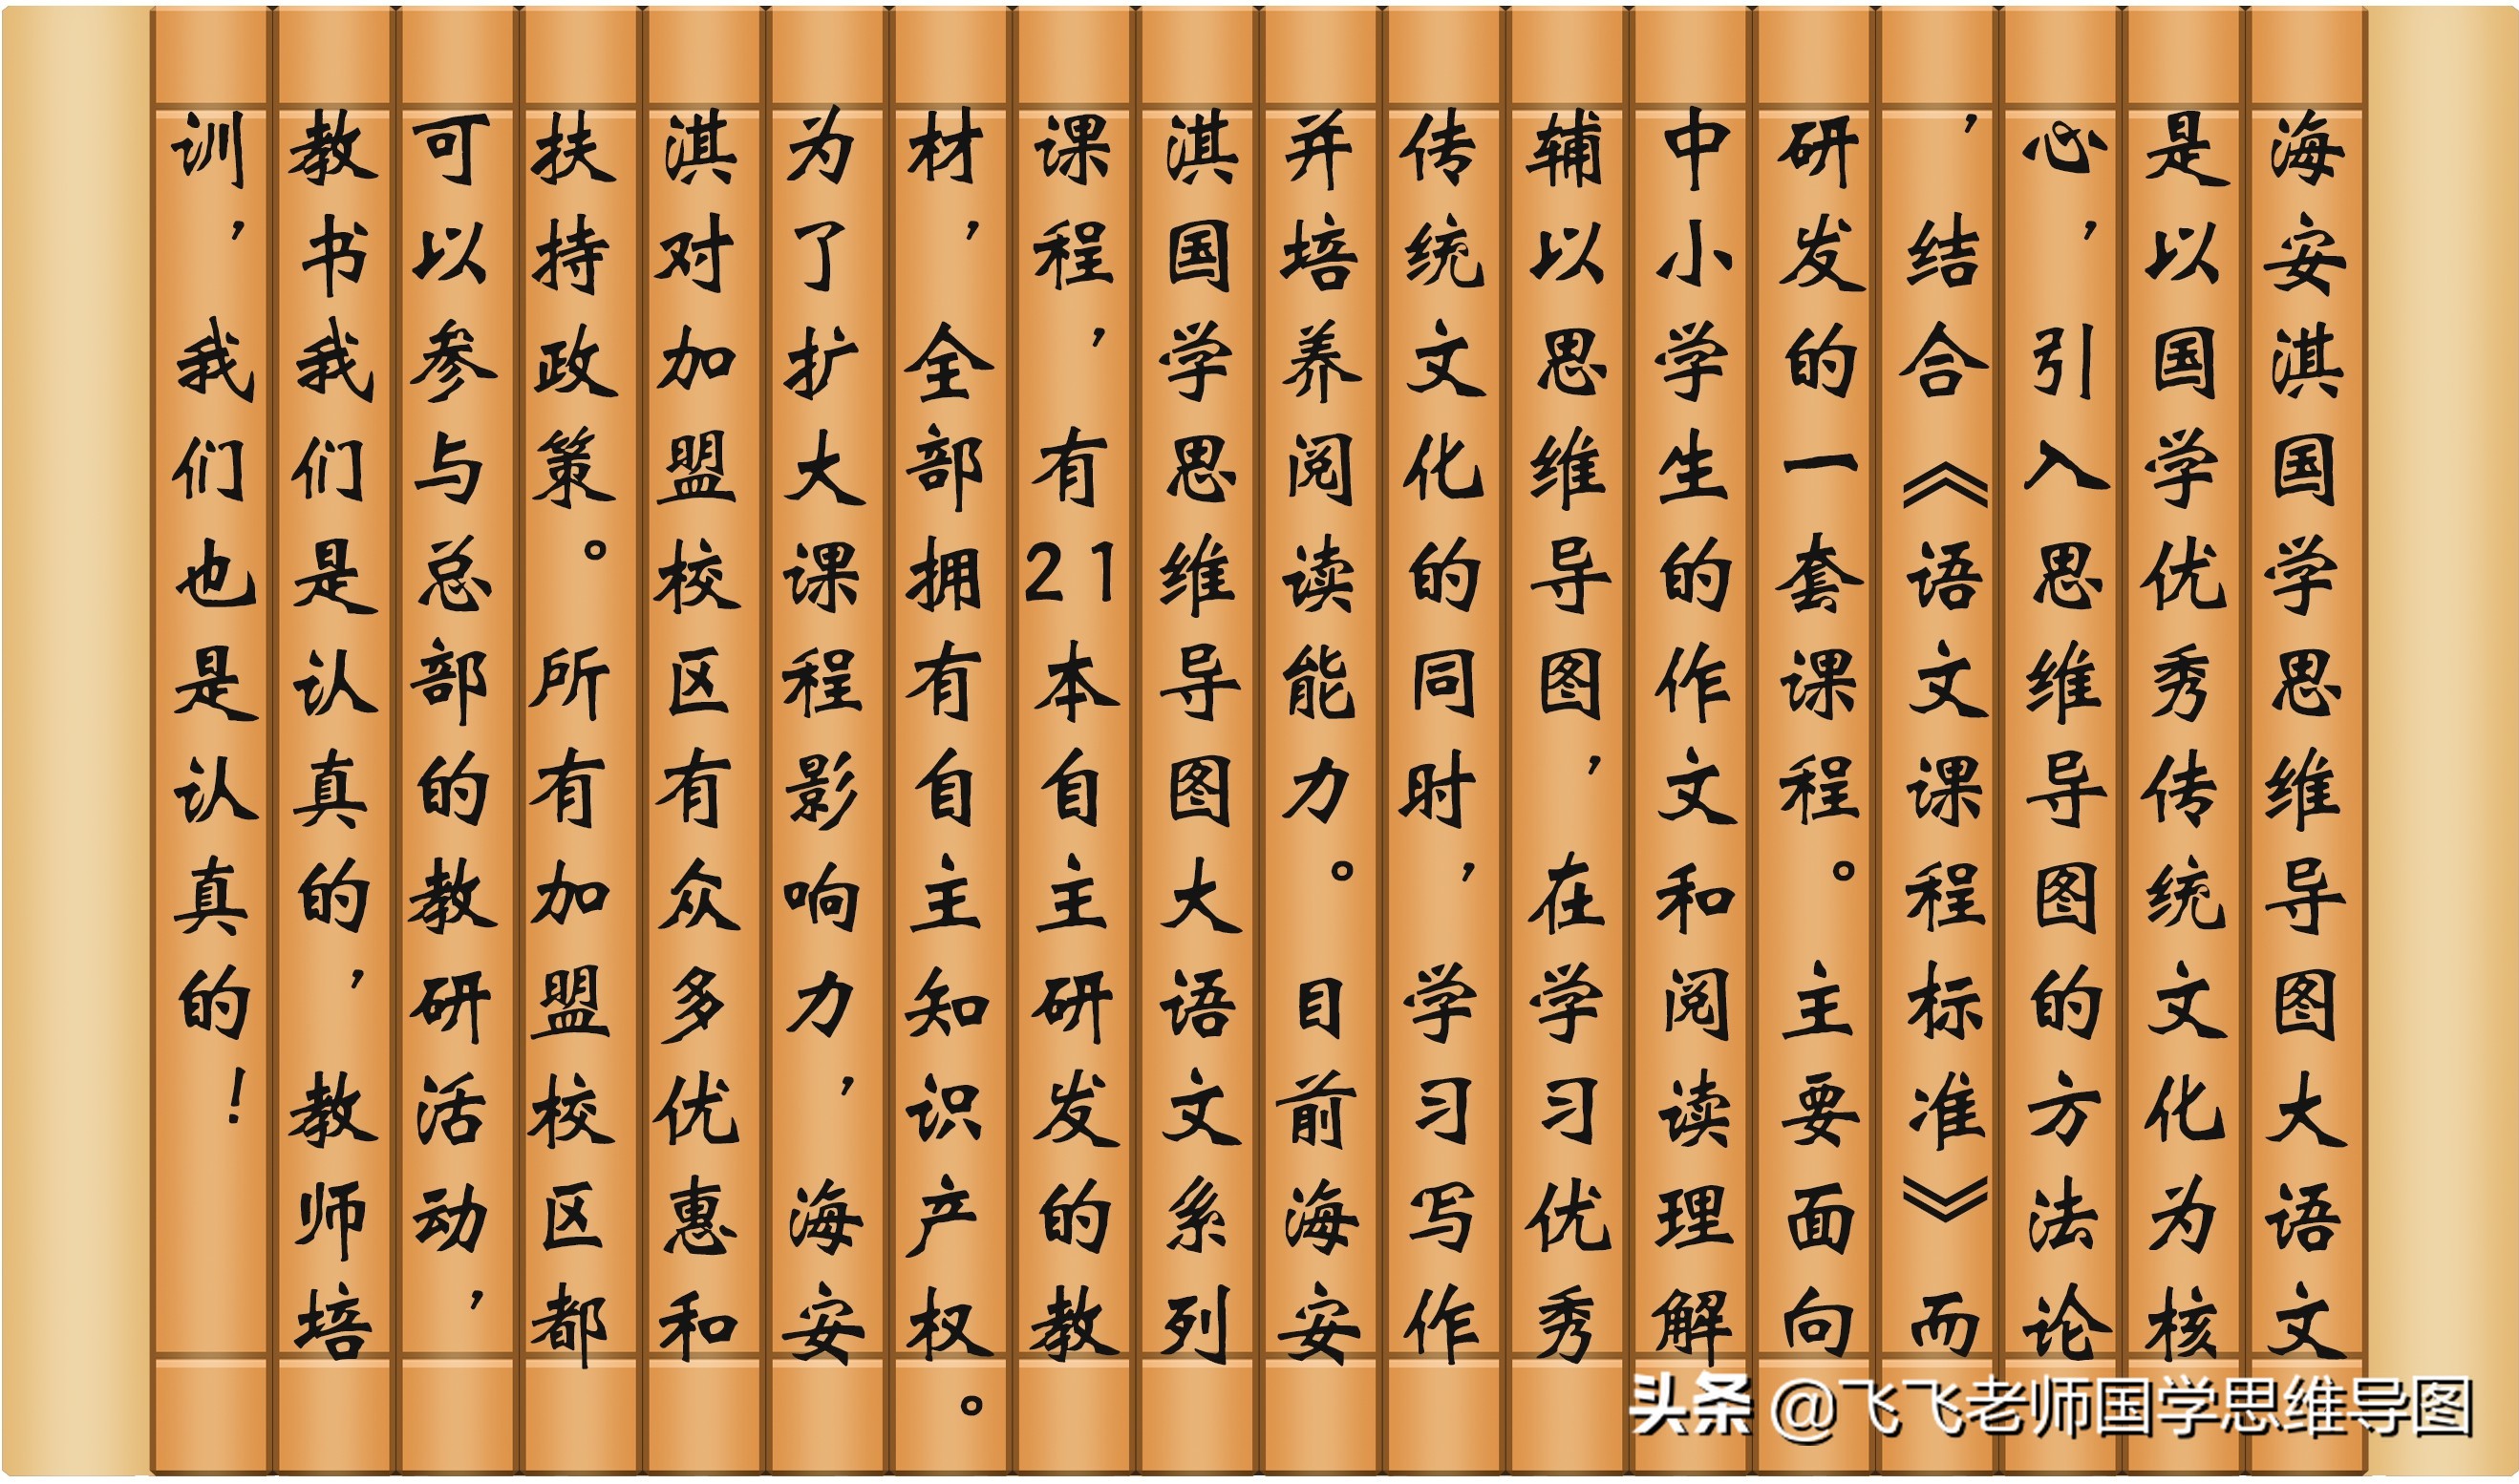 海安淇国学思维导图大语文
是以国学优秀传统文化为核
心，引入思维导图的方法论
，结合《语文课程标准》而
研发的一套课程。主要面向
中小学生的作文和阅读理解
辅以思维导图，在学习优秀
传统文化的同时，学习写作
并培养阅读能力。目前海安
淇国学思维导图大语文系列
课程，有21本自主研发的教
材，全部拥有自主知识产权。
为了扩大课程影响力，海安
淇对加盟校区有众多优惠和
扶持政策。所有加盟校区都
可以参与总部的教研活动，
教书我们是认真的，教师培
训，我们也是认真的！
头条 @飞飞老师国学思维导图